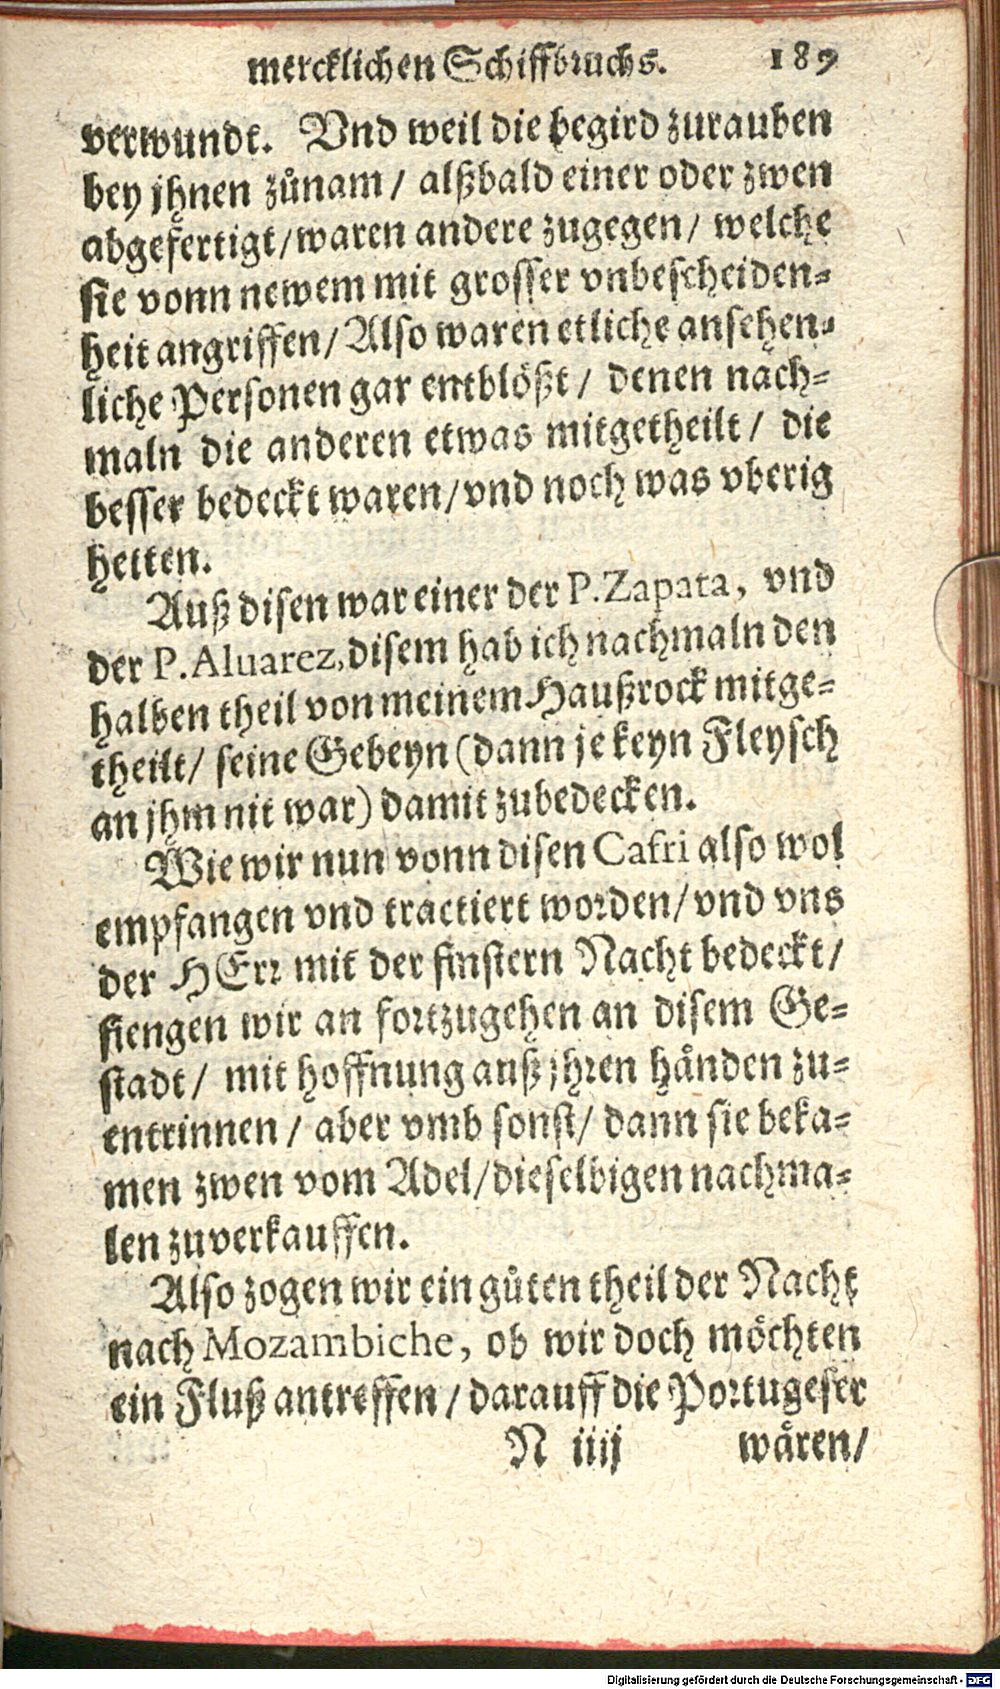 mercklichen Schiffbruchs. 189
verwundt. Vnd weil die begird zurauben
bey jhnen zůnam / alßbald einer oder zwen
abgefertigt / waren andere zugegen / welche
sie vonn newem mit grosser vnbescheiden-
heit angriffen / Also waren etliche ansehen-
liche Personen gar entblößt / denen nach-
maln die anderen etwas mitgetheilt / die
besser bedeckt waren / vnd noch was vberig
hetten.
Auß disen war einer der P. Zapata, vnd
der P. Aluarez, disem hab ich nachmaln den
halben theil von meinem Haußrock mitge-
theilt / seine Gebeyn (dann je keyn Fleysch
an jhm nit war) damit zubedecken.
Wie wir nun vonn disen Cafri also wol
empfangen vnd tractiert worden / vnd vns
der HErr mit der finstern Nacht bedeckt /
fiengen wir an fortzugehen an disem Ge-
stadt / mit hoffnung auß jhren händen zu-
entrinnen / aber vmb sonst / dann sie beka-
men zwen vom Adel / dieselbigen nachma-
len zuverkauffen.
Also zogen wir ein gůten theil der Nacht
nach Mozambiche, ob wir doch möchten
ein Fluß antreffen / darauff die Portugeser
N iiij wären /
Digitalisierung gefördert durch die Deutsche Forschungsgemeinschaft - DFG